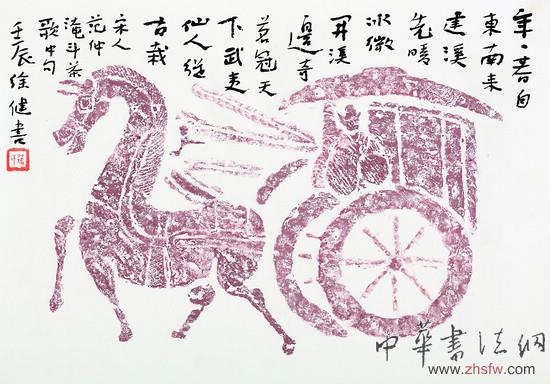 年〻春自
東南来
建溪
先暖
冰微
開溪
邊奇
茗冠天
下武夷
仙人從
古栽
宋人
范仲
淹斗茶
歌中句
壬辰徐健書
中華書法網
www.zhsfw.com